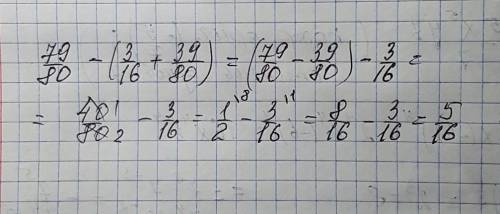 79/80 - (3/16 + 39/80) = (79/80 - 39/80) - 3/16 =
= 40 1/80 2 - 3/16 = 1/2 \8 - 3/16 \1 = 8/16 - 3/16 = 5/16